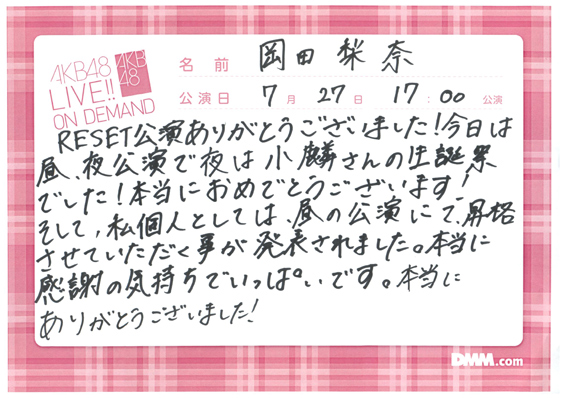 AKB48
LIVE!!
ON DEMAND
AKB
48
名前 岡田梨奈
公演日 7月27日 17:00公演
RESET公演ありがとうございました!今日は
昼、夜公演で夜は小麟さんの生誕祭
でした!本当におめでとうございます!
そして、私個人としては、昼の公演にて、昇格
させていただく事が発表されました。本当に
感謝の気持ちでいっぱいです。本当に
ありがとうございました!
DMM.com